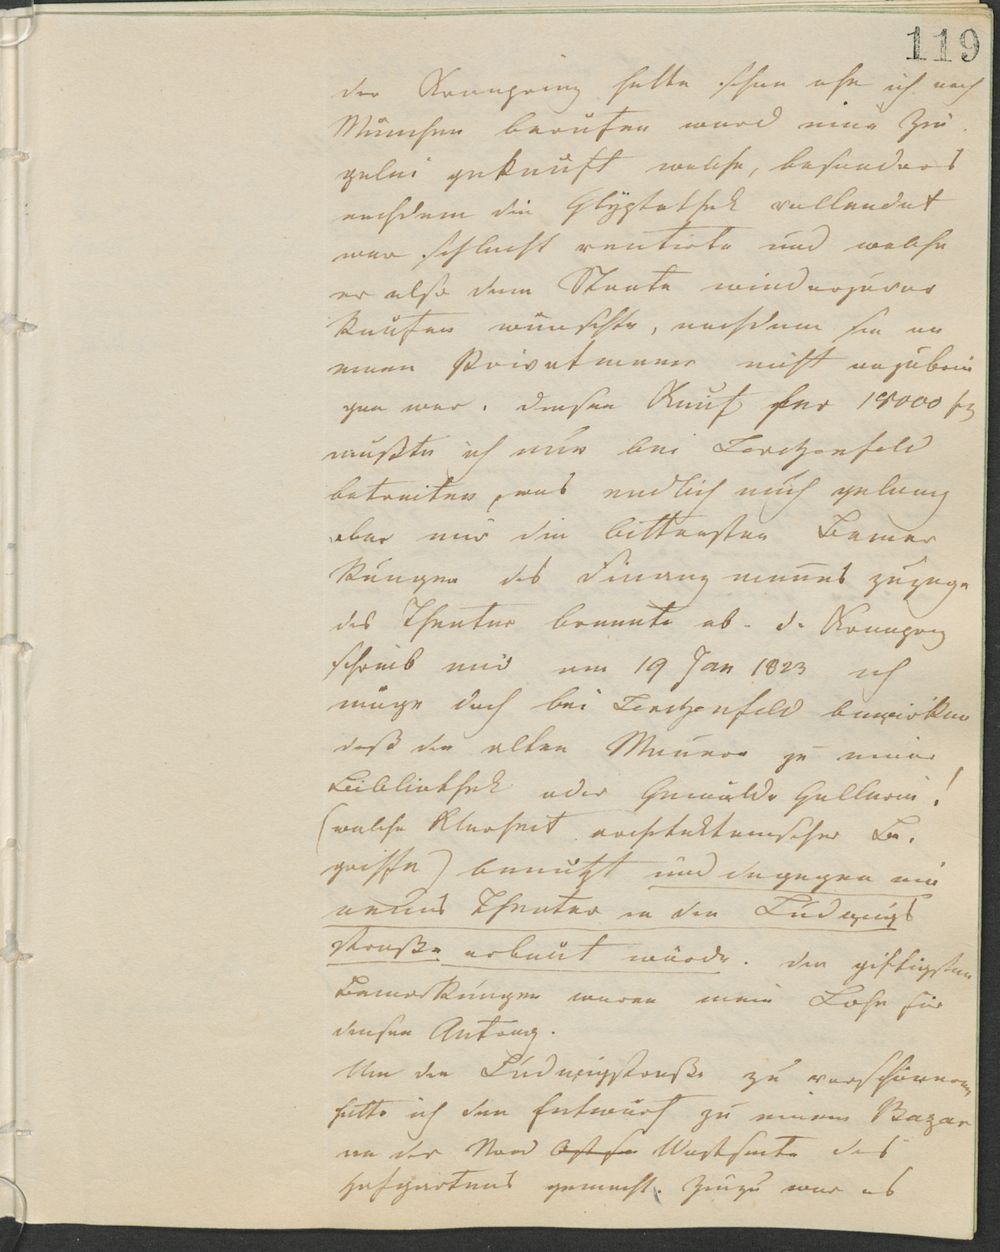 119
der Kronprinz hatte schon ehe ich nach
München berufen ward eine Zie
gelei gekauft welche, besonders
nachdem die Glyptothek vollendet
war schlecht rentirte und welche
er also dem Staate wieder zu ver
kaufen wünschte, nachdem sie an
einen Privatmann nicht anzubrin
gen war. diesen Kauf für 18000 f
mußte ich nun bei Lerchenfeld
betreiben, was endlich auch gelang
aber mir die bittersten Bemer
kungen des Finanzmannes zuzog.
das Theater brannte ab. d. Kronprz
schrieb mir am 19 Jan 1823 ich
möge doch bei Lerchenfeld bewirken
daß die alten Mauern zu einer
Bibliothek oder Gemälde Gallerie!
(welche Klarheit architektonischer Be.
griffe) benützt und dagegen ein
neues Theater in der Ludwigs
straße erbaut würde. die giftigsten
Bemerkungen waren mein Lohn für
diesen Antrag.
Um die Ludwigstraße zu verschönern
hatte ich den Entwurf zu einem Bazar
an der Nord Westseite des
Hofgartens gemacht. Hiezu war es